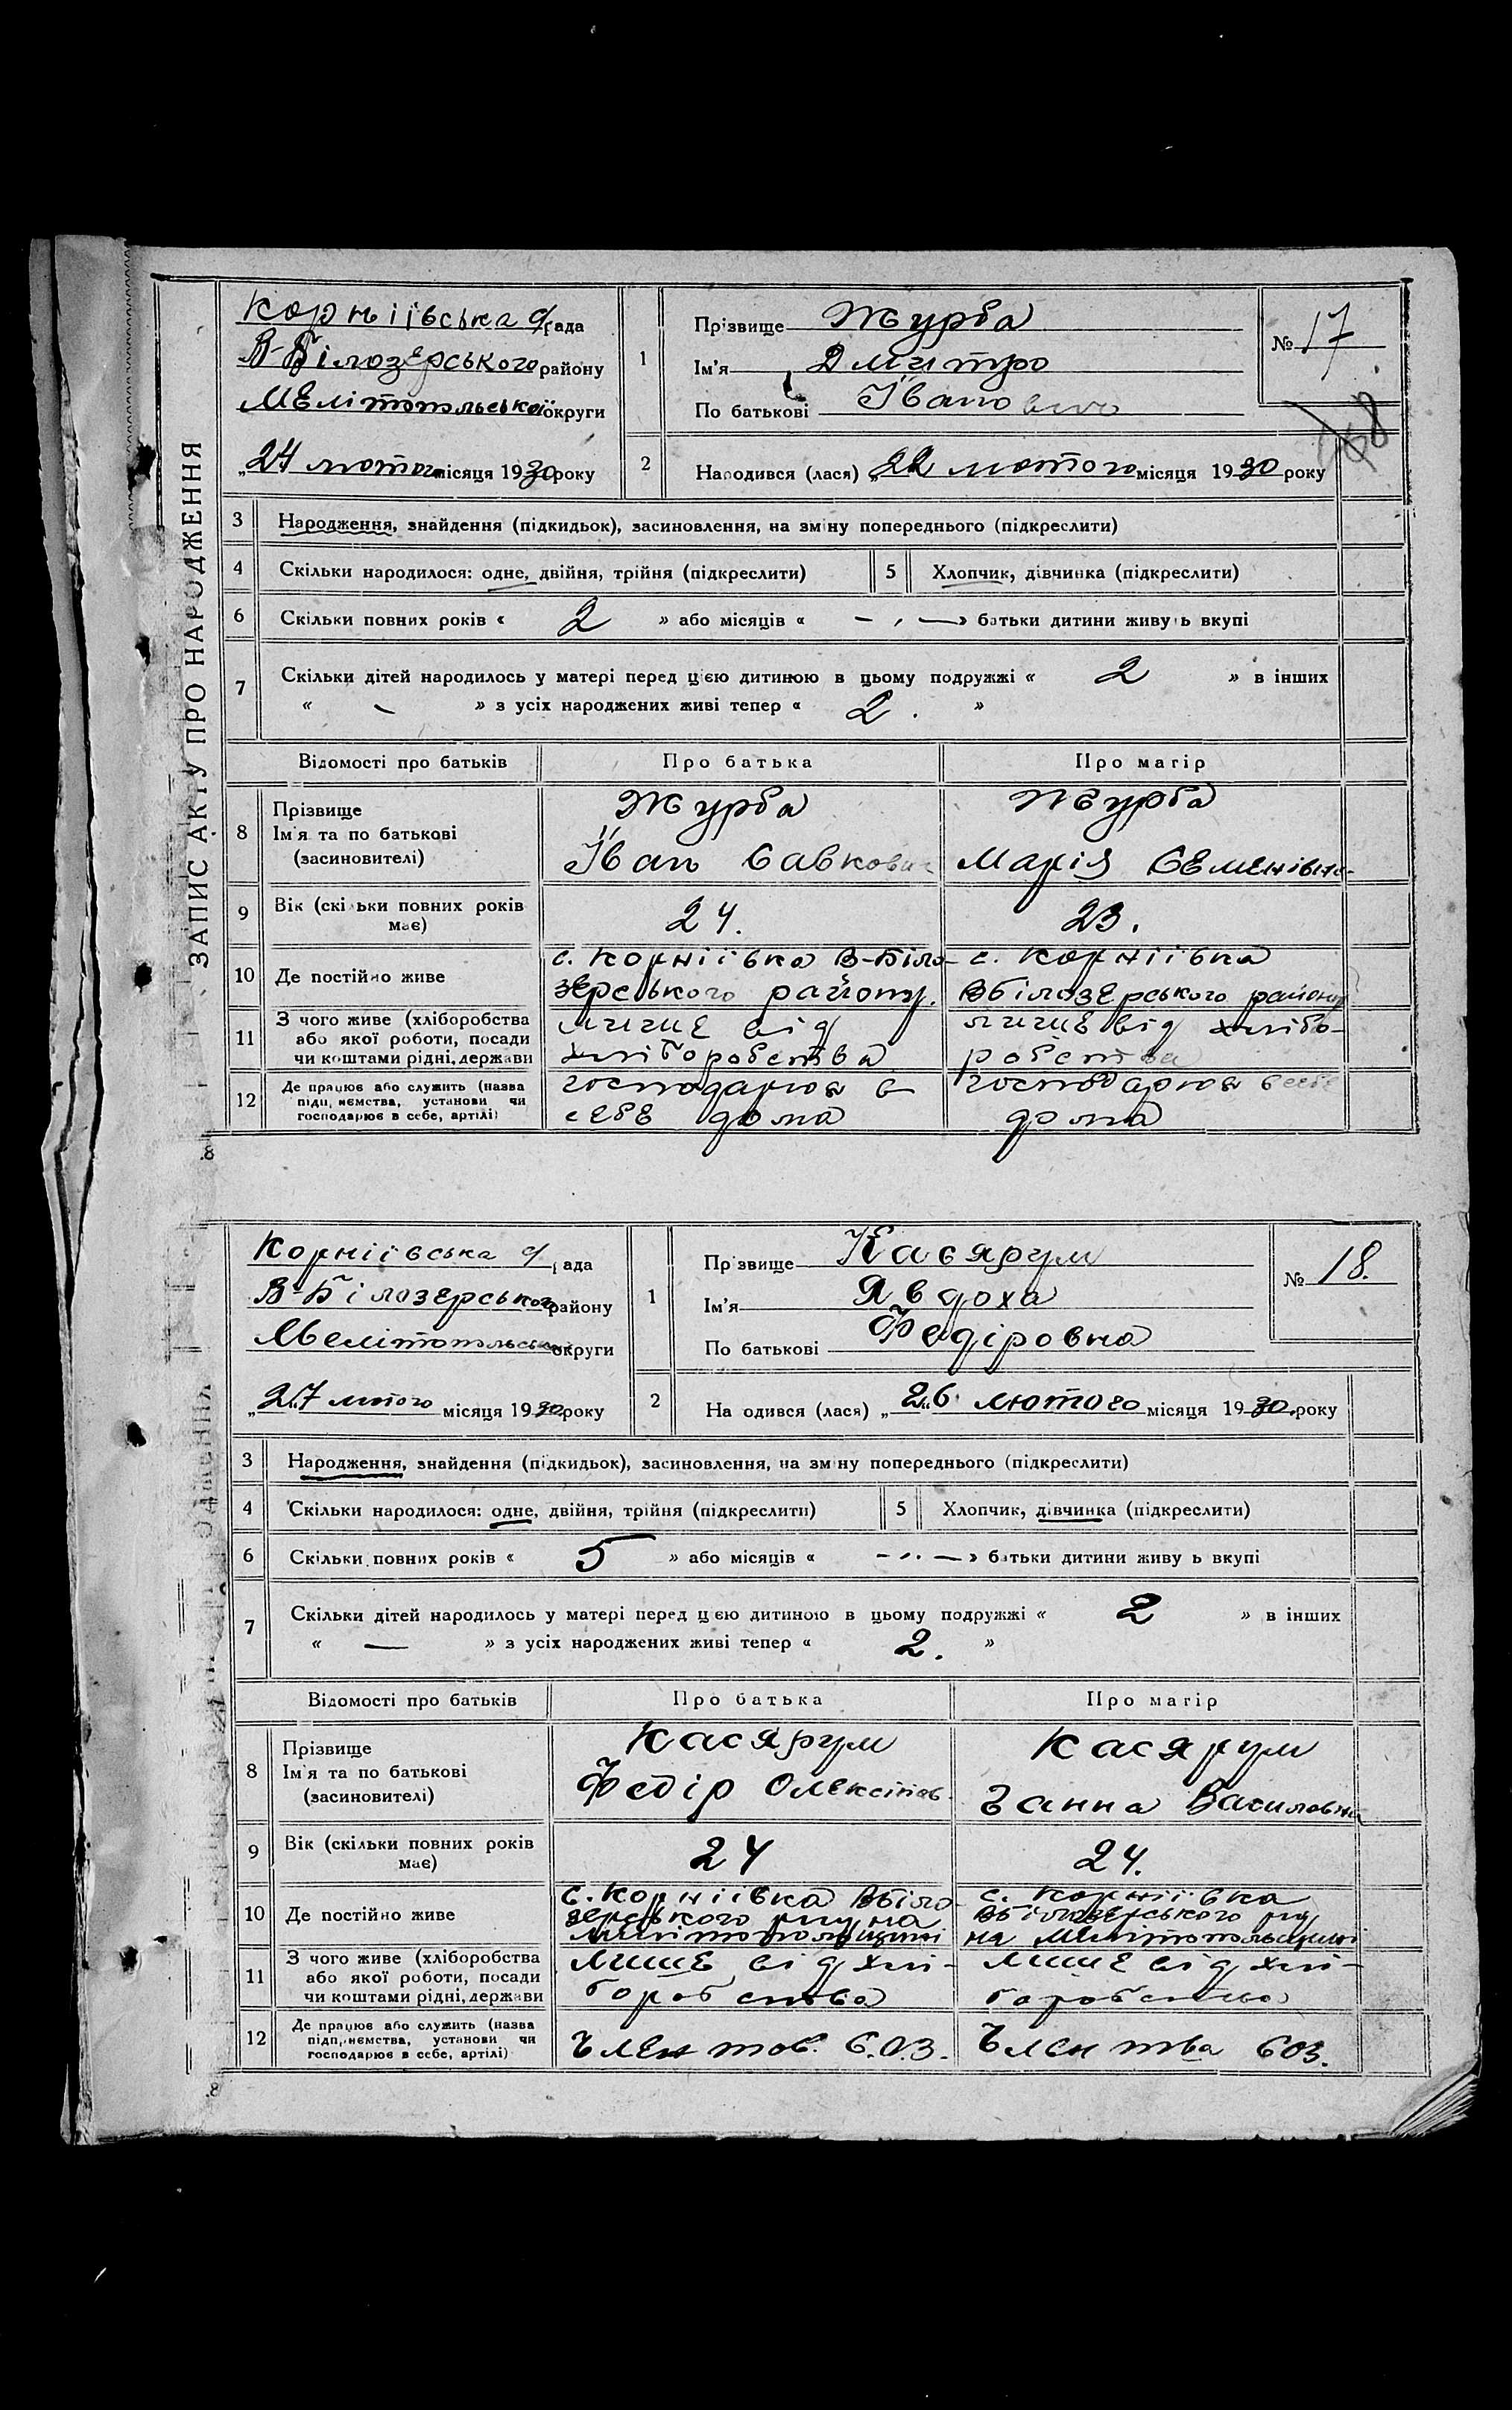 ЗАПИС АКТУ ПРО НАРОДЖЕННЯ
Корніївська с/рада
В-Білозерського району
Мелітопольської округи
„24 лютого місяця 1930 року
1
Прізвище Журба
Ім'я Дмитро
По батькові Іванович
№ 17.
2
Народився (лася) „22 лютого місяця 1930 року
3 Народження, знайдення (підкидьок), засиновлення, на зміну попереднього (підкреслити)
4 Скільки народилося: одне, двійня, трійня (підкреслити) 5 Хлопчик, дівчинка (підкреслити)
6 Скільки повних років « 2 » або місяців « — » батьки дитини живуть вкупі
7 Скільки дітей народилось у матері перед цією дитиною в цьому подружжі « 2 » в інших
« – » з усіх народжених живі тепер « 2. »
Відомості про батьків Про батька Про матір
8 Прізвище Журба Журба
Ім'я та по батькові
(засиновителі) Іван Савкович Марія Семенівна
9 Вік (скільки повних років має) 24. 23.
10 Де постійно живе с. Корніївка В-Біло- с. Корніївка
зерського району. ВБілозерського району
11 З чого живе (хліборобства лише від лише від хлібо-
або якої роботи, посади
чи коштами рідні, держави хліборобства робства
12 Де працює або служить (назва господарює в господарює в себе
підприємства, установи чи
господарює в себе, артілі) себе дома дома
Корніївська с/рада
В-Білозерського району
Мелітопольської округи
„27 лютого місяця 1930 року
1
Прізвище Касярум
Ім'я Явдоха
По батькові Федіровна
№ 18.
2
Народився (лася) „26 лютого місяця 1930. року
3 Народження, знайдення (підкидьок), засиновлення, на зміну попереднього (підкреслити)
4 Скільки народилося: одне, двійня, трійня (підкреслити) 5 Хлопчик, дівчинка (підкреслити)
6 Скільки повних років « 5 » або місяців « — » батьки дитини живуть вкупі
7 Скільки дітей народилось у матері перед цією дитиною в цьому подружжі « 2 » в інших
« — » з усіх народжених живі тепер « 2. »
Відомості про батьків Про батька Про матір
8 Прізвище Касярум Касярум
Ім'я та по батькові
(засиновителі) Федір Ганна Василовна
9 Вік (скільки повних років має) 24 24.
10 Де постійно живе с. Корніївка ВБіло- с. Корніївка
зерського р-ну на ВБілозерського р-ну
Мелітопольщині на Мелітопольщині
11 З чого живе (хліборобства лише від хлі- лише від хлі-
або якої роботи, посади
чи коштами рідні, держави боробства боробства
12 Де працює або служить (назва
підприємства, установи чи
господарює в себе, артілі) Член тов. СОЗ. Член т-ва СОЗ.